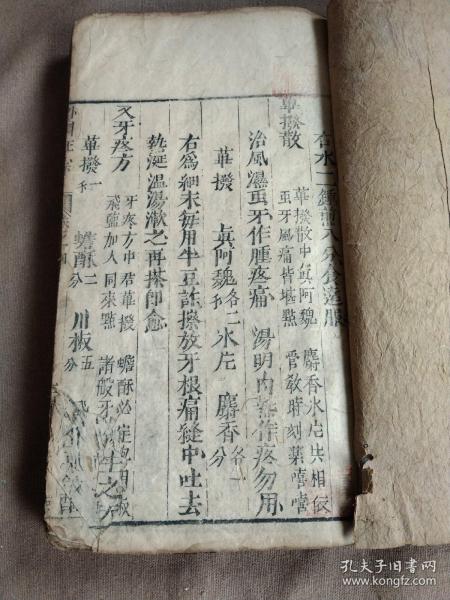 右水二鍾煎八分食遠服
華撥散
華撥散中真阿魏 麝香氷片共相依
虫牙風痛皆堪點 管教時刻藥嘻嘻
治風濕虫牙作腫疼痛 陽明內熱作疼勿用
華撥 真阿魏各二 氷片 麝香各一分
右為細末每用半豆許擦放牙根痛縫中吐去
熱涎溫湯漱之再搽即愈
又牙疼方
牙疼方中君華撥 蟾酥必定與川椒
飛鹽加入同來點 諸般牙
華撥 蟾酥二分 川椒五分
孔夫子旧书网
www.kongfz.com